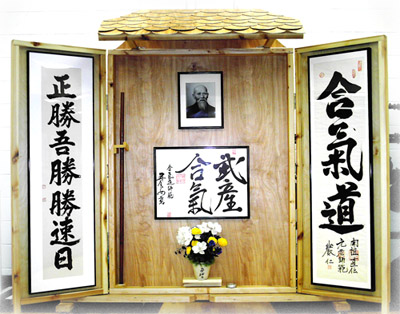 合氣道
武産
合氣
正勝吾勝勝速日